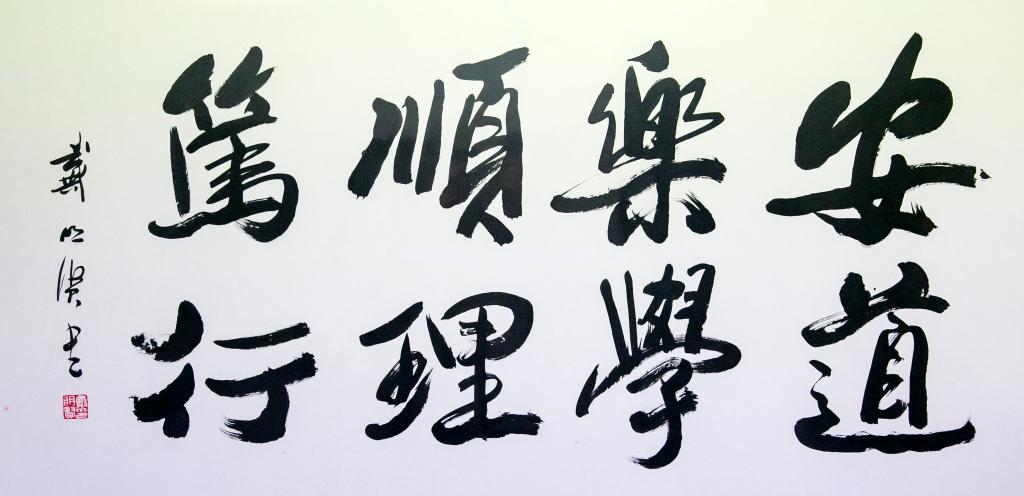 安道
樂學
順理
篤行
戴明賢書